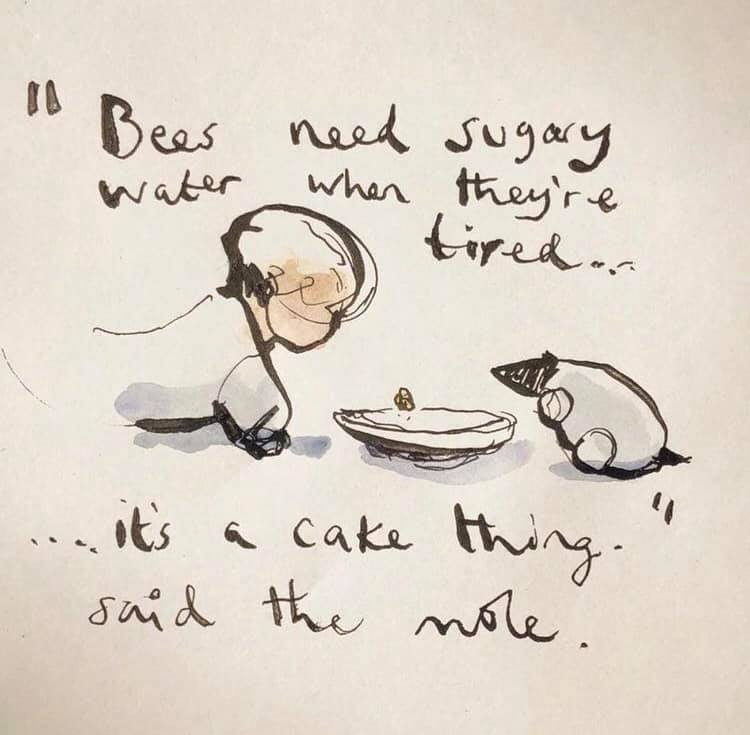 "Bees need sugary
water when they're
tired...
.... it's a cake thing."
said the mole.